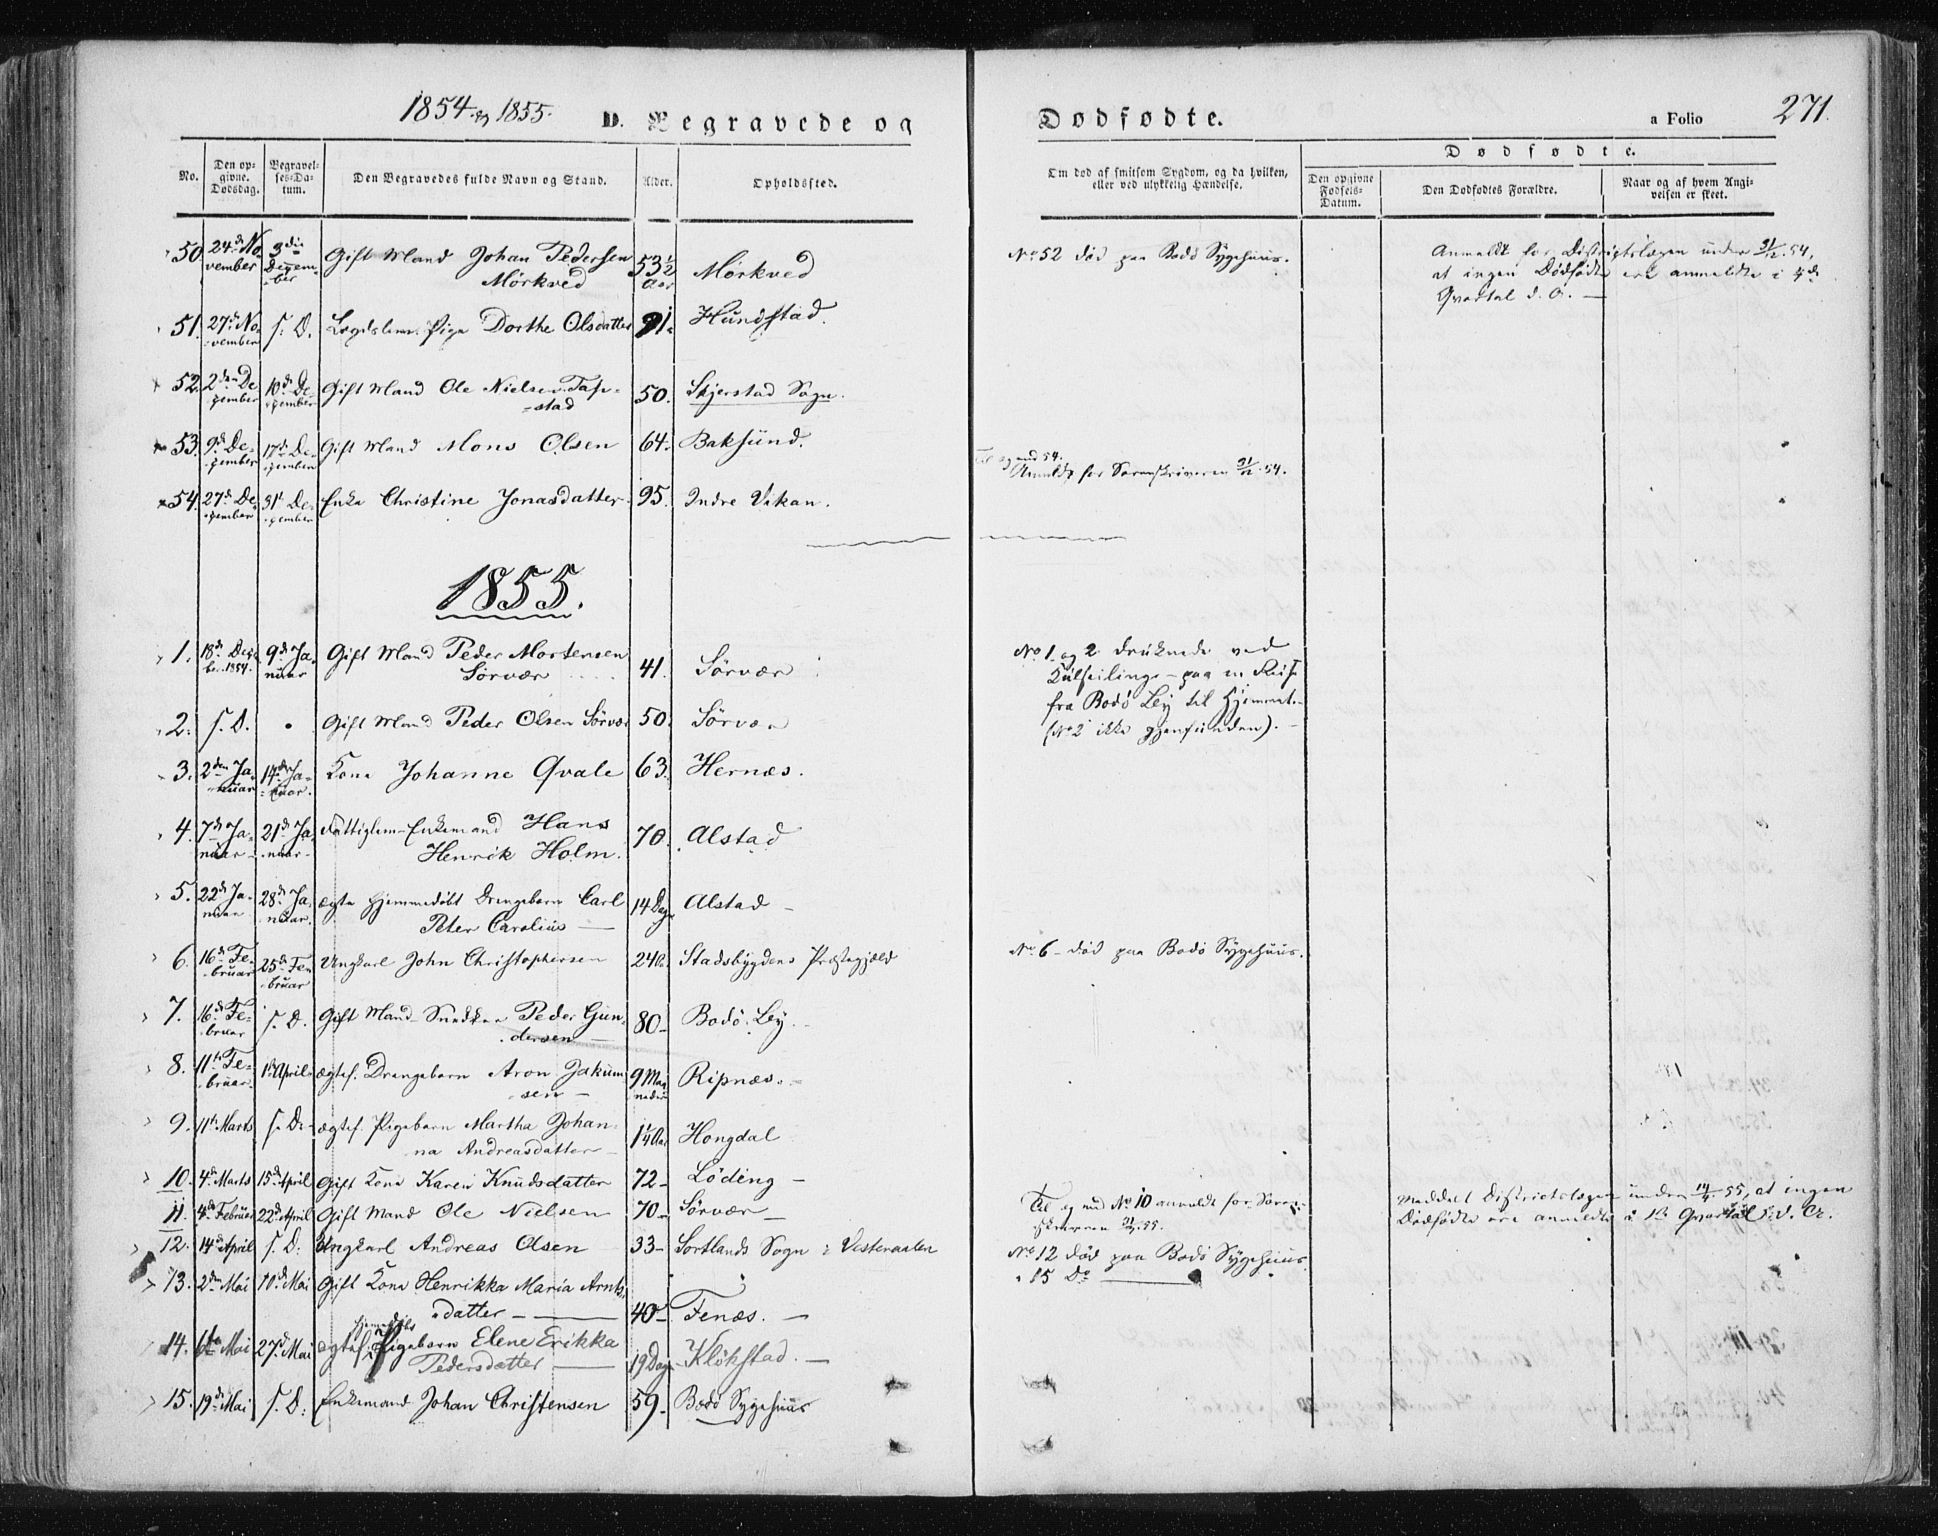 1854 og 1855.
D. Begravede og
Dødfødte.
a Folio
271.
No.
Den opgivne Dødsdag.
Begravelses-Datum.
Den Begravedes fulde Navn og Stand.
Alder.
Opholdssted.
Om død af smitsom Sygdom, og da hvilken, eller ved ulykkelig Hændelse.
Dødfødte.
Den opgivne Fødsels-Datum.
Den Dødfødtes Forældre.
Naar og af hvem Angivelsen er skeet.
50. 24de November 3die December Gift Mand Johan Pedersen Mörkved 53½ Aar Mörkved
No 52 död paa Bodö Sygehuus.
Anmeldt for Districtslægen under 31/12 54,
at ingen Dödfödte ere anmeldte i 4de
Qvartal d. A. —
51. 27de November s. D. Lægdslem Pige Dorthe Olsdatter 91. Hundstad.
52. 2den December 10de December Gift Mand Ole Nielsen 50. Skjerstad Sogn.
53. 9de December 17de December Gift Mand Mons Olsen 64. Baksund.
Til og med 54.
Anmeldt for Sorenskriveren 31/12 54.
54. 27de December 31te December Enke Christine Jonasdatter 95. Indre Vikan.
1855.
1. 18de Decbr. 1854. 9de Januar Gift Mand Peder Mortensen Sörvær 41. Sörvær
No 1. og 2 druknede ved
Kulseiling paa en Reise
fra Bodö Bey til Hjemmet.
(No 2 ikke gjenfunden). —
2. s. D. " Gift Mand Peder Olsen Sörvær 50. Sörvær
3. 2den Januar 14de Januar Kone Johanne Qvale 63. Hernæs.
4. 7de Januar 21de Januar Fattiglem Enkemand Hans Henrik Holm. 70. Alstad
5. 22de Januar 28de Januar ægte hjemmedöbt Drengebarn Carl Peter Carolius — 14 Dage Alstad —
6. 16de Februar 25de Februar Ungkarl John Christophersen 24 Aar Stadsbygdens Præstegjæld
No 6 — död paa Bodö Sygehuus.
7. 16de Februar s. D. Gift Mand Peder Gundersen — 80 — Bodö Bey.
8. 11te Februar 1ste April ægtef. Drengebarn Aron Jakumsen — 9 Maaneder Ripnæs. —
9. 11te Marts s. D. ægtef. Pigebarn Martha Johanna Andreasdatter — 1¼ Aar Hongdal
10. 4de Marts 15de April Gift Kone Karen Knudsdatter 72 — Löding —
11. 4de Februar 22de April Gift Mand Ole Nielsen 70 — Sörvær —
Til og med No 10 anmeldt for Sorenskriveren 55.
Meddelt Districtslægen under 14/4 55, at ingen
Dödfödte ere anmeldte i 1ste Qvartal d. A.
12. 14de April s. D. Ungkarl Andreas Olsen 33 — Sortlands Sogn i Vesteraalen
No 12 död paa Bodö Sygehuus.
" 15 Do —
13. 2den Mai 10de Mai Gift Kone Henrikka Maria Arntsdatter — 40 — Fenæs. —
14. Mai 27de Mai ægtef. hjemmedöbt Pigebarn Elene Erikka Pedersdatter — 19 Dage Klökstad. —
15. 19de Mai s. D. Enkemand Johan Christensen 59 — Bodö Sygehuus